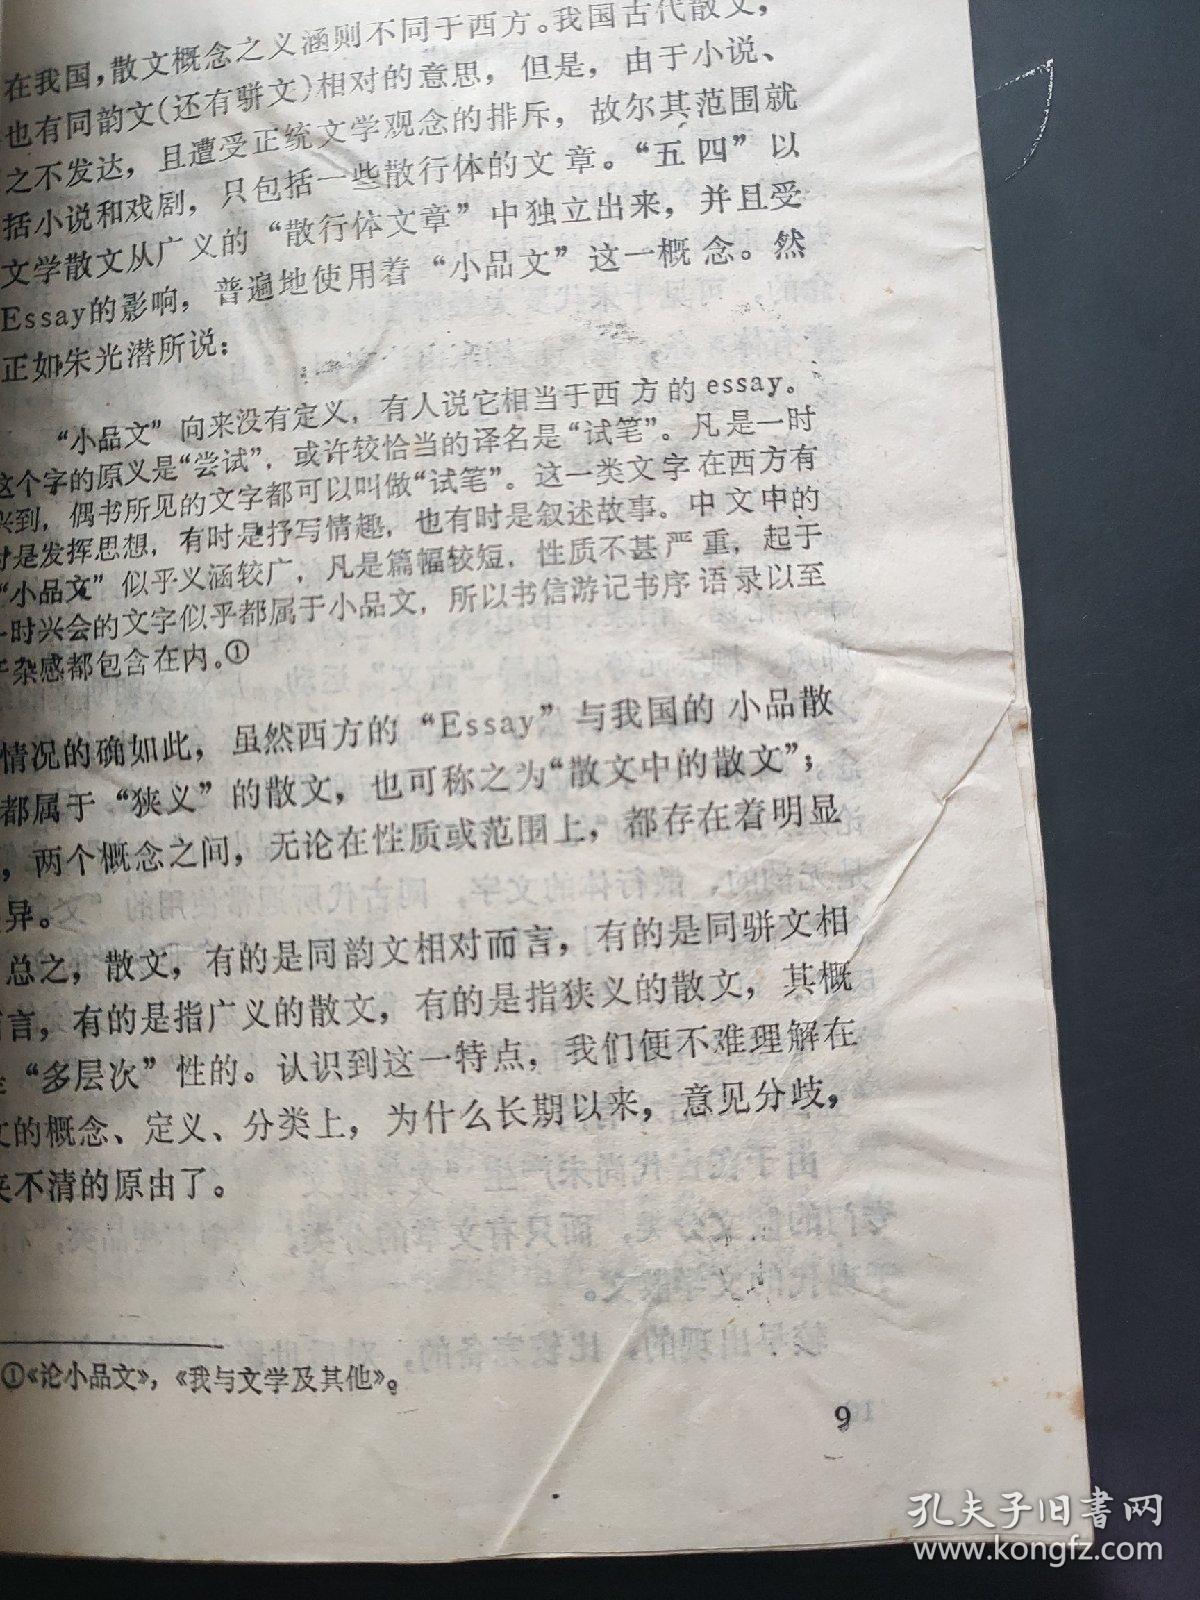 在我国，散文概念之义涵则不同于西方。我国古代散文，
也有同韵文（还有骈文）相对的意思，但是，由于小说、
之不发达，且遭受正统文学观念的排斥，故尔其范围就
括小说和戏剧，只包括一些散行体的文章。“五四”以
文学散文从广义的“散行体文章”中独立出来，并且受
Essay的影响，普遍地使用着“小品文”这一概念。然
正如朱光潜所说：
“小品文”向来没有定义，有人说它相当于西方的essay。
这个字的原义是“尝试”，或许较恰当的译名是“试笔”。凡是一时
兴到，偶书所见的文字都可以叫做“试笔”。这一类文字在西方有
时是发挥思想，有时是抒写情趣，也有时是叙述故事。中文中的
“小品文”似乎义涵较广，凡是篇幅较短，性质不甚严重，起于
一时兴会的文字似乎都属于小品文，所以书信游记书序语录以至
于杂感都包含在内。①
情况的确如此，虽然西方的“Essay”与我国的小品散
都属于“狭义”的散文，也可称之为“散文中的散文”；
，两个概念之间，无论在性质或范围上，都存在着明显
异。
总之，散文，有的是同韵文相对而言，有的是同骈文相
而言，有的是指广义的散文，有的是指狭义的散文，其概
“多层次”性的。认识到这一特点，我们便不难理解在
文的概念、定义、分类上，为什么长期以来，意见分歧，
夹不清的原由了。
①《论小品文》，《我与文学及其他》。
9
孔夫子旧书网
www.kongfz.com